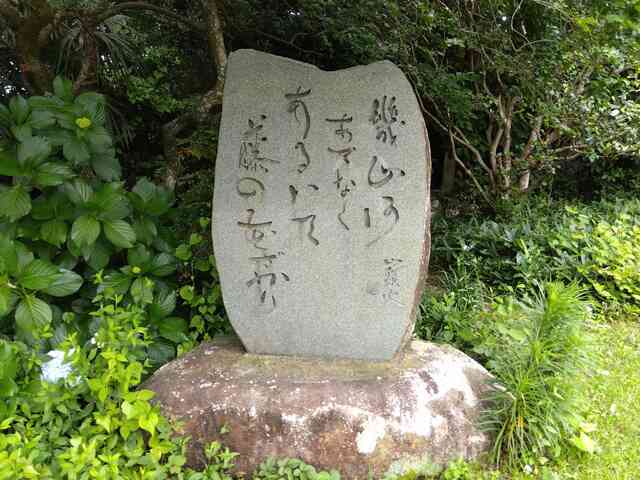 幾山河
あてなく
あるいて
藤の花ざかり
山頭火